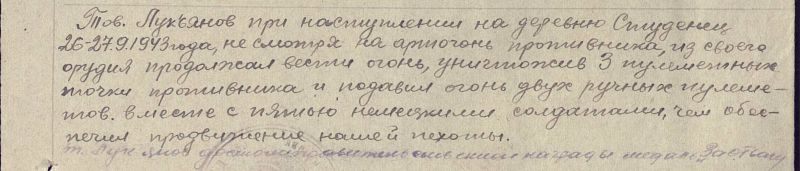 Тов. Лукьянов при наступлении на деревню Студенец
26-27.9.1943 года, не смотря на артогонь противника, из своего
орудия продолжал вести огонь, уничтожив 3 пулеметных
точки противника и подавил огонь двух ручных пулеме-
тов. вместе с пятью немецкими солдатами, чем обес-
печил продвижение нашей пехоты.
т. Лукьянов достоин правительственной награды медаль "За отвагу